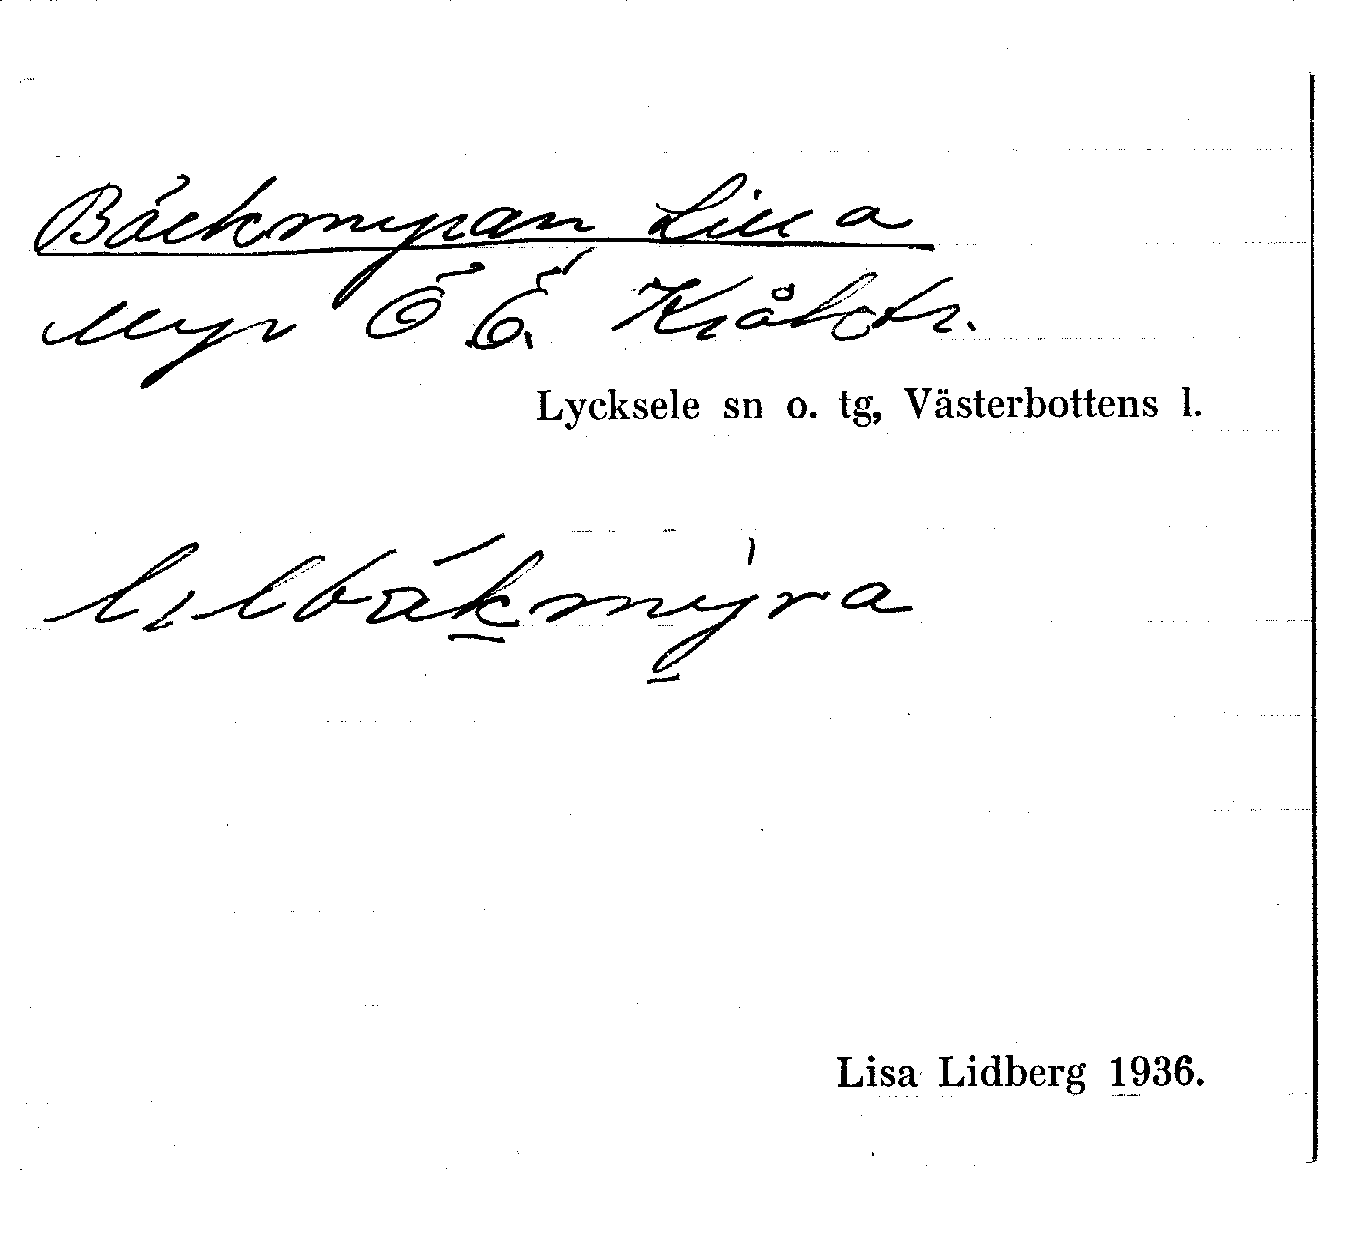 Bäckmyran Lilla
Myr Ö Ö. Kråktr.
Lycksele sn o. tg, Västerbottens l.
lilbäkmyra
Lisa Lidberg 1936.